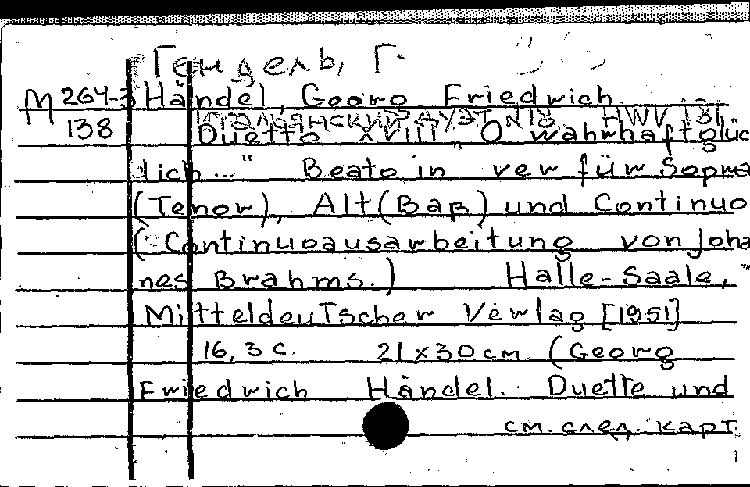 Гендель, Г.
М 264-3 Händel, Georg Friedrich
Итальянский дуэт №18 HWV 181
138 Duetto XVIII „O wahrhaft glück
lich..." Beato in ver für Sopra
(Tenor), Alt (Baß) und Continuo
(Continuoausarbeitung von Joha
nes Brahms.) Halle-Saale,
Mitteldeutscher Verlag [1951]
16, 3 с. 21x30 cm (Georg
Friedrich Händel. Duette und
см. след. карт.